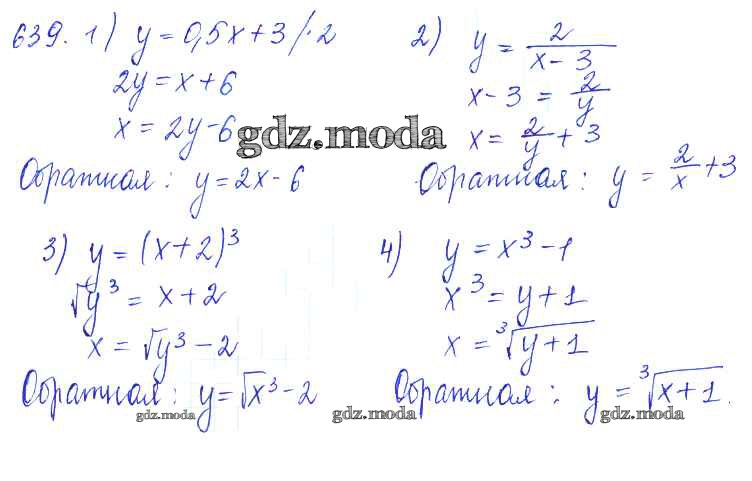 639. 1) y = 0,5x + 3 /·2
2y = x + 6
x = 2y - 6
Обратная: y = 2x - 6
2) y = 2/(x - 3)
x - 3 = 2/y
x = 2/y + 3
Обратная: y = 2/x + 3
gdz.moda
3) y = (x + 2)³
√y³ = x + 2
x = √y³ - 2
Обратная: y = √x³ - 2
gdz.moda
4) y = x³ - 1
x³ = y + 1
x = ³√(y + 1)
Обратная: y = ³√(x + 1).
gdz.moda
gdz.moda